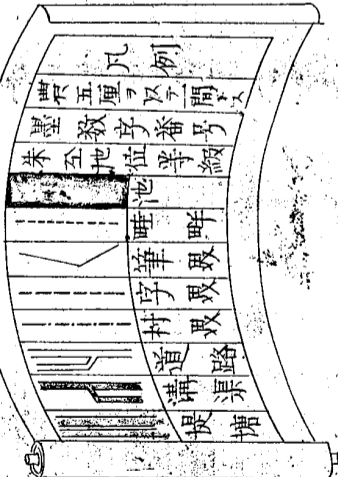 凡例
五厘ヲ以テ一間トス
墨数字番号
朱 地位等級
池
畦畔
筆界
字界
村界
道路
溝渠
堤塘